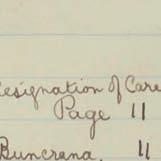 Resignation of Care
Page 11
Buncrana, "